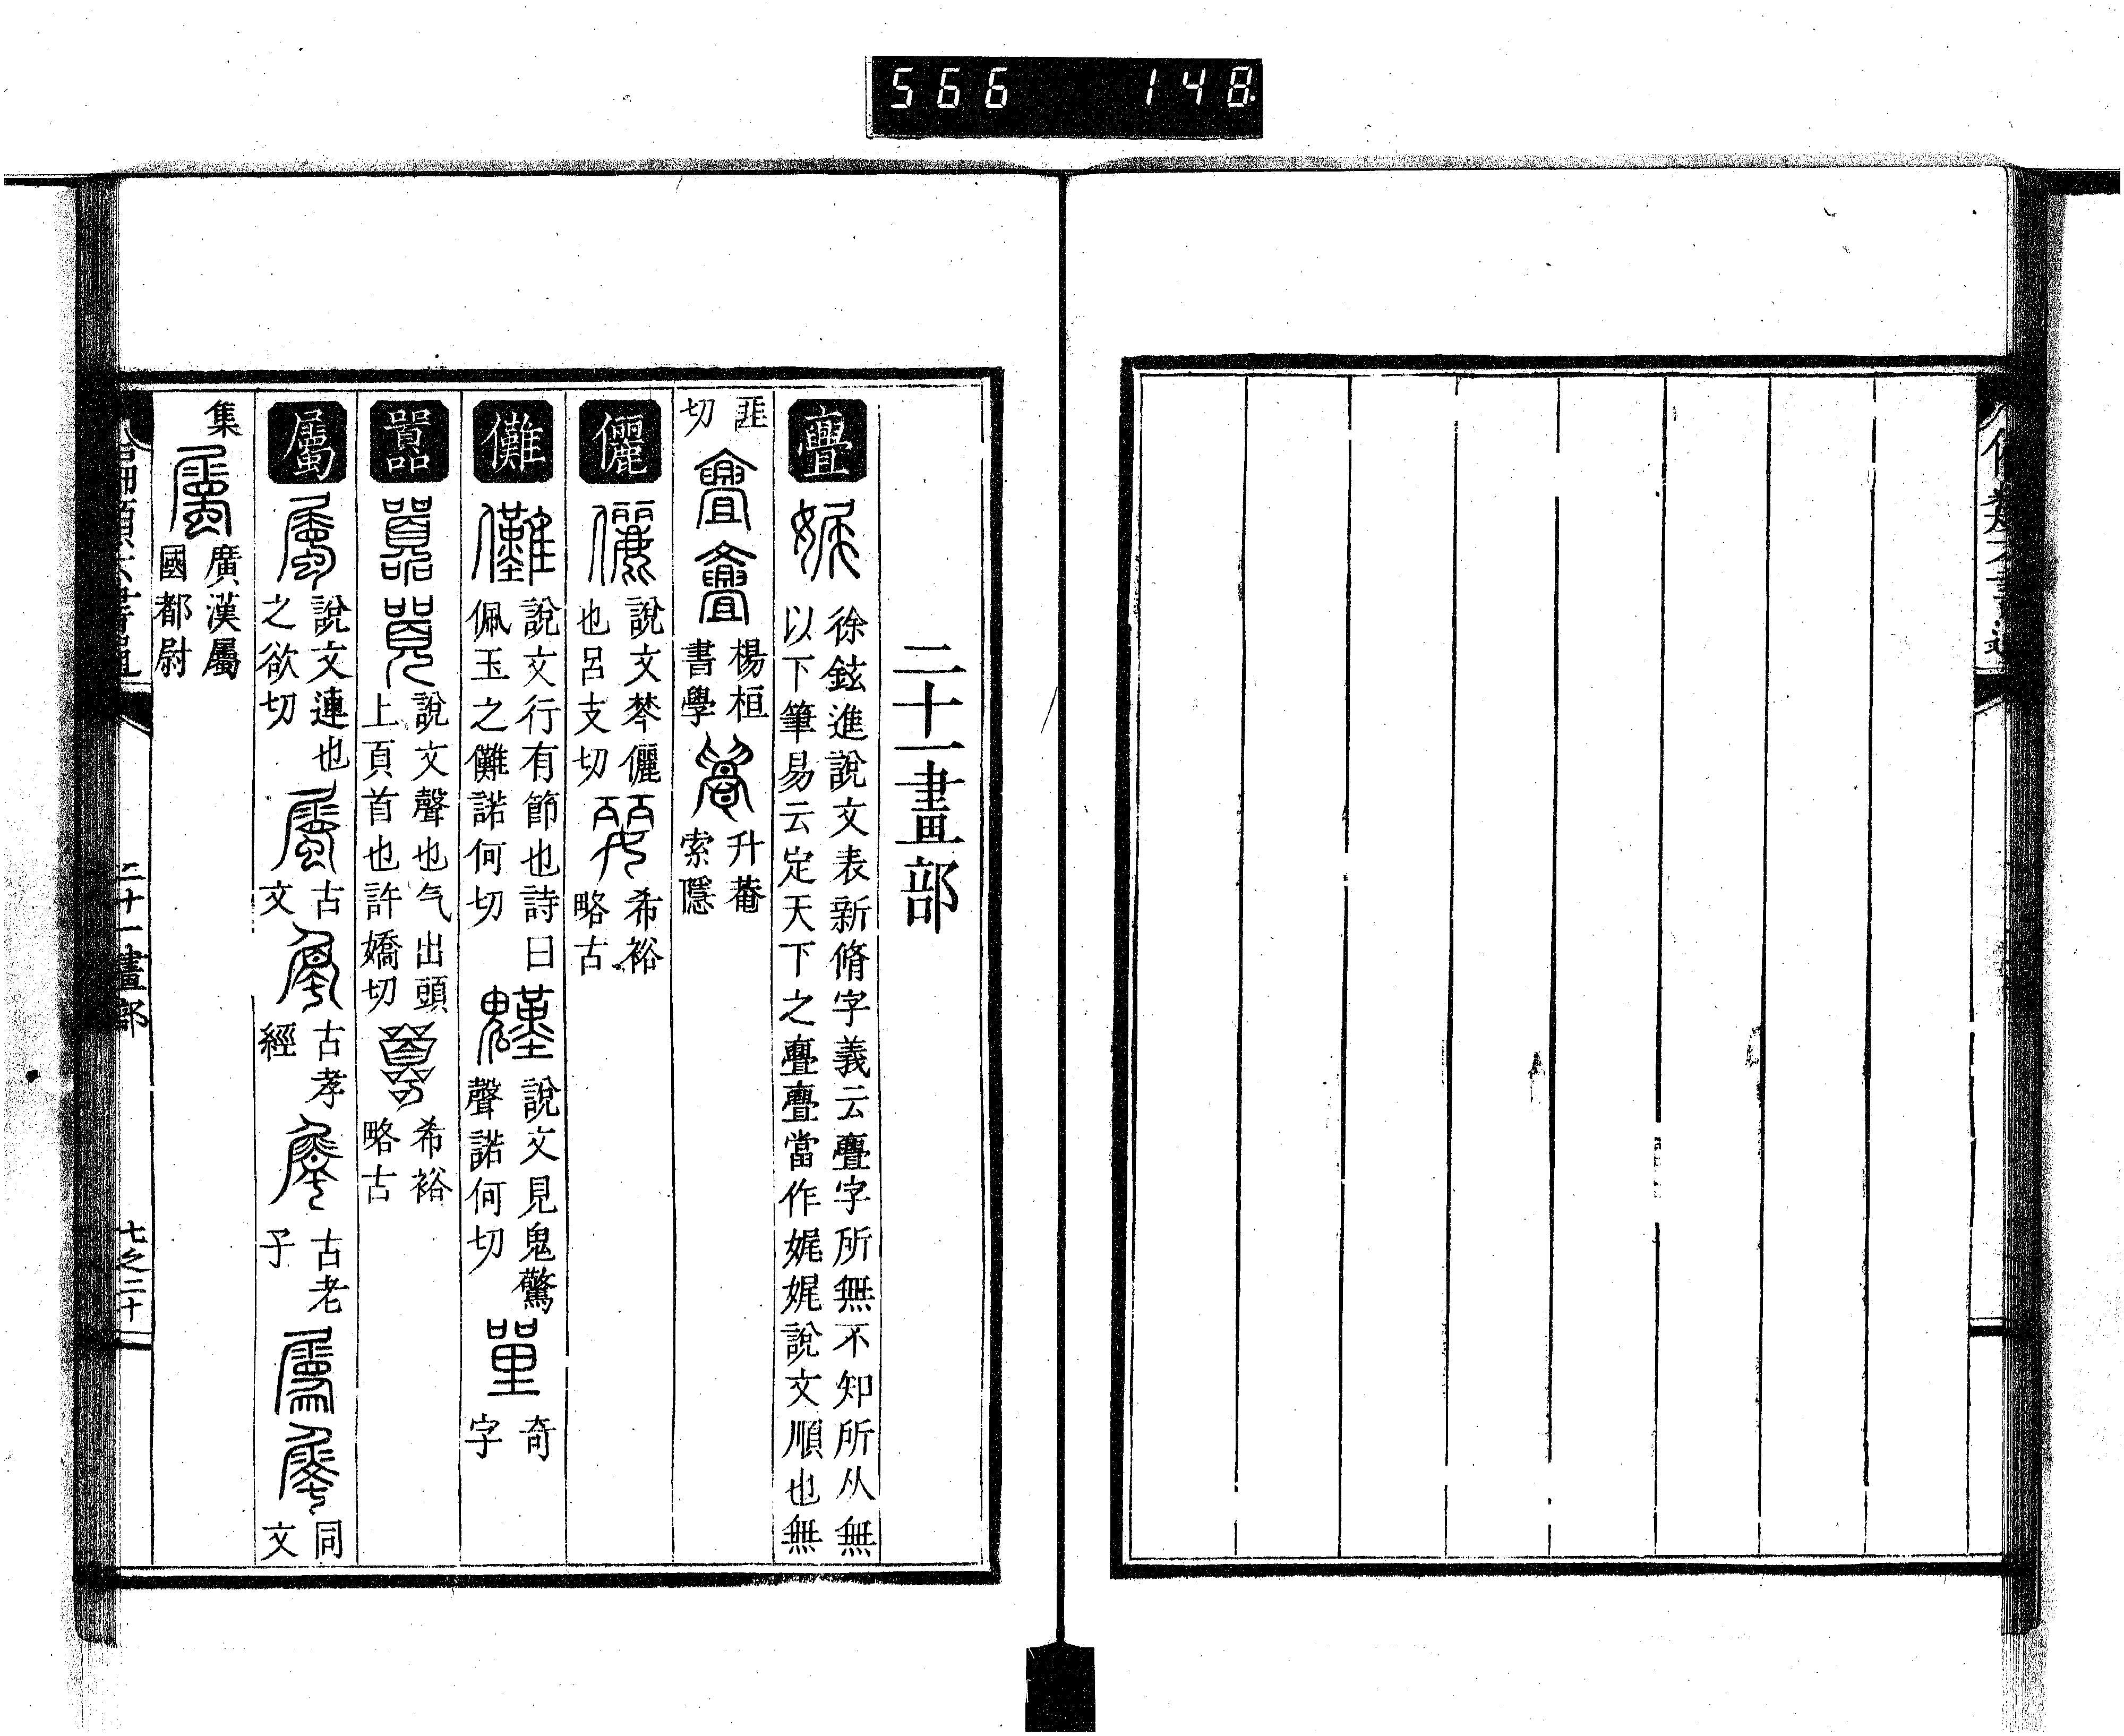 566 148
二十一畫部
亹 徐鉉進說文表新脩字義云亹字所無不知所从無
以下筆易云定天下之亹亹當作娓娓說文順也無
匪切 楊桓書學 升菴索隱
儷 說文棽儷也呂支切 希裕略古
儺 說文行有節也詩曰佩玉之儺諾何切 說文見鬼驚聲諾何切 奇字
囂 說文聲也气出頭上頁首也許嬌切 希裕略古
屬 說文連也之欲切 古文 古孝經 古老子 同文
集 廣漢屬國都尉
二十一畫部
七之二十